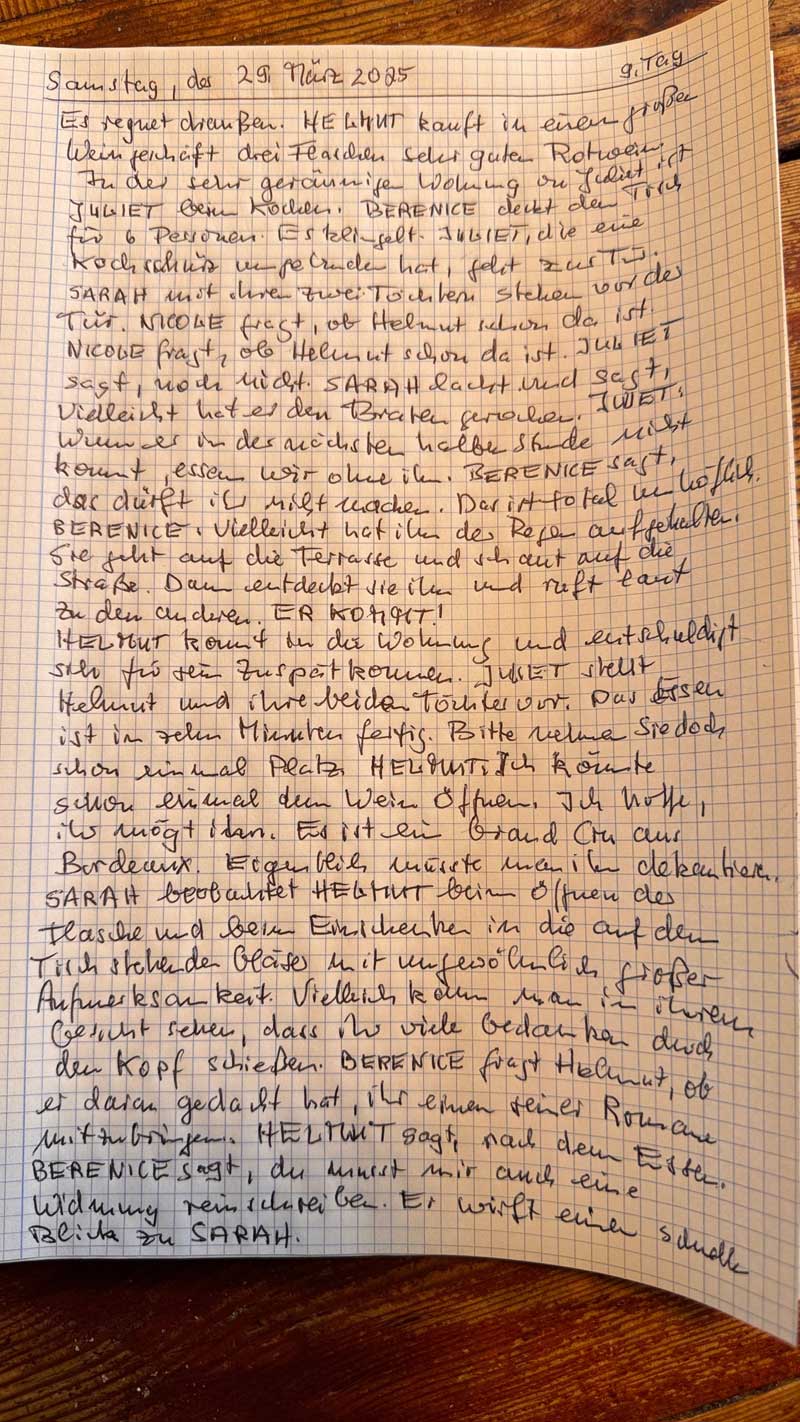 Samstag, des 29. März 2025 9. Tag
Es regnet draußen. HELMUT kauft in einem großen
Weingeschäft drei Flaschen sehr guten Rotwein.
In der sehr geräumigen Wohnung von Juliet ist
JULIET beim Kochen. BERENICE deckt den Tisch
für 6 Personen. Es klingelt. JULIET, die eine
Kochschürz umgebunden hat, geht zur Tür.
SARAH mit ihren zwei Töchtern stehen vor der
Tür. NICOLE fragt, ob Helmut schon da ist.
NICOLE fragt, ob Helmut schon da ist. JULIET
sagt, noch nicht. SARAH lacht und sagt,
vielleicht hat er den Braten gerochen. JULIET:
Wenn er in der nächsten halben Stunde nicht
kommt, essen wir ohne ihn. BERENICE sagt,
das dürft ihr nicht machen. Das ist total unhöflich.
BERENICE: Vielleicht hat ihn der Regen aufgehalten.
Sie geht auf die Terrasse und schaut auf die
Straße. Dann entdeckt sie ihn und ruft laut
zu den anderen. ER KOMMT!
HELMUT kommt in die Wohnung und entschuldigt
sich für sein Zuspätkommen. JULIET stellt
Helmut und ihre beiden Töchter vor. Das Essen
ist in zehn Minuten fertig. Bitte nehmen Sie doch
schon einmal Platz. HELMUT: Ich könnte
schon einmal den Wein öffnen. Ich hoffe,
ihr mögt ihn. Es ist ein Grand Cru aus
Bordeaux. Eigentlich müsste man ihn dekantieren.
SARAH beobachtet HELMUT beim Öffnen der
Flasche und beim Einschenken in die auf dem
Tisch stehenden Gläser mit ungewöhnlich großer
Aufmerksamkeit. Vielleich kann man in ihrem
Gesicht sehen, dass ihr viele Gedanken durch
den Kopf schießen. BERENICE fragt Helmut, ob
er daran gedacht hat, ihr einen seiner Romane
mitzubringen. HELMUT sagt, nach dem Essen.
BERENICE sagt, du musst mir auch eine
Widmung reinschreiben. Er wirft einen schnellen
Blick zu SARAH.